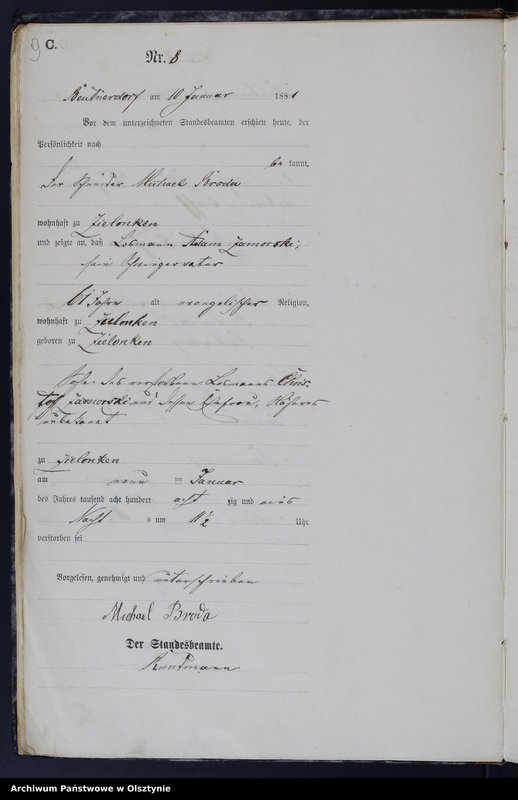 9 C.
Nr. 8
Beutnerdorf am 10 Januar 1881
Vor dem unterzeichneten Standesbeamten erschien heute, der
Persönlichkeit nach
be kannt,
Der Michael Broda
wohnhaft zu Zielonken
und zeigte an, daß Losmann Adam Zamorski,
sein Schwiegervater
61 Jahre alt evangelischer Religion,
wohnhaft zu Zielonken
geboren zu Zielonken
Sohn des verstorbenen Losmanns Chris
tof Zamorski und dessen Ehefrau, Näheres
unbekannt
zu Zielonken
am neun im Januar
des Jahres tausend acht hundert acht zig und eins
Nacht s um 11 1/2 Uhr
verstorben sei
Vorgelesen, genehmigt und unterschrieben
Michael Broda
Der Standesbeamte.
Archiwum Państwowe w Olsztynie